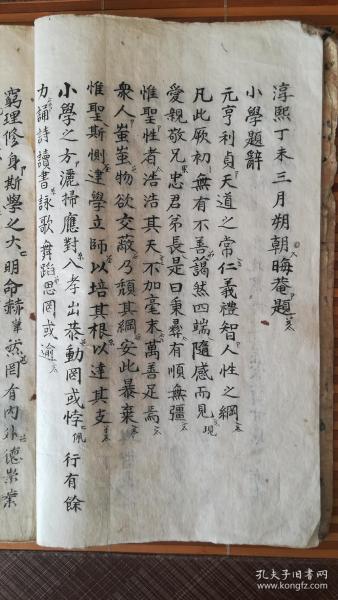 淳熙丁未三月朔朝晦菴題
小學題辭
元亨利貞天道之常仁義禮智人性之綱
凡此厥初無有不善藹然四端隨感而見現
愛親敬兄忠君弟長是曰秉彝有順無彊
惟聖性者浩浩其天不加毫末萬善足焉
衆人蚩蚩物欲交蔽乃頹其綱安此暴棄
惟聖斯惻建學立師以培其根以達其支
小學之方灑掃應對入孝出恭動罔或悖 行有餘
力誦詩讀書詠歌舞蹈思罔或逾
窮理修身斯學之大明命赫然罔有內外德崇業
孔夫子旧书网